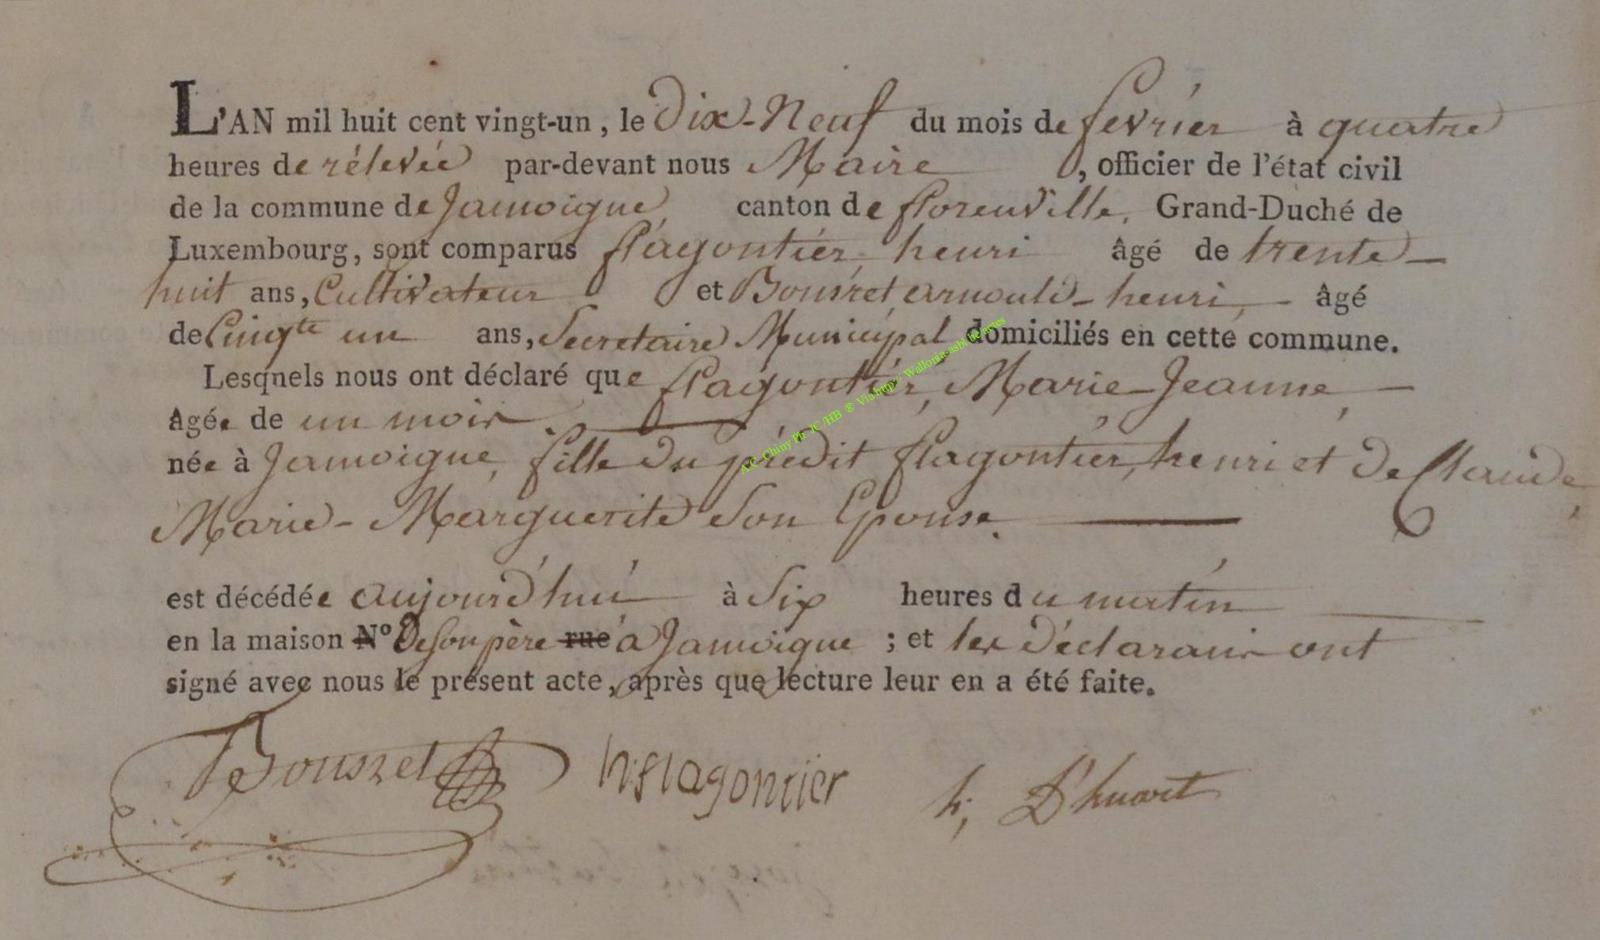 L'AN mil huit cent vingt-un, le Dix-Neuf du mois de février à quatre
heures de rélevée par-devant nous Maire, officier de l'état civil
de la commune de Jamoigne, canton de florenville, Grand-Duché de
Luxembourg, sont comparus flagontier, henri âgé de trente-
huit ans, Cultivateur et Bousret arnould-henri, âgé
de Cinqte un ans, Secretaire Municipal domiciliés en cette commune.
Lesqnels nous ont déclaré que flagontier, Marie-Jeanne,
âgée de un mois.
née à Jamoigne, fille du prédit flagontier, henri et de Claude,
Marie-Marguerite son Epouse.
est décédée aujourd'hui à six heures du matin
en la maison N° de son père rue à Jamoigne ; et les déclarans ont
signé avec nous le présent acte, après que lecture leur en a été faite.
Bousret h:flagontier h, D'huart